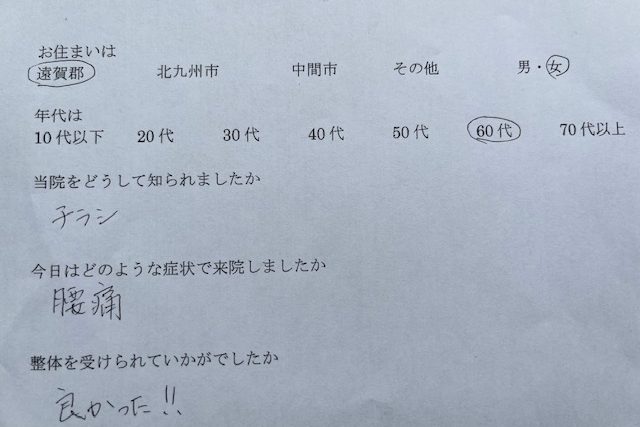 お住まいは
遠賀郡 北九州市 中間市 その他 男・女
年代は
10代以下 20代 30代 40代 50代 60代 70代以上
当院をどうして知られましたか
チラシ
今日はどのような症状で来院しましたか
腰痛
整体を受けられていかがでしたか
良かった!!